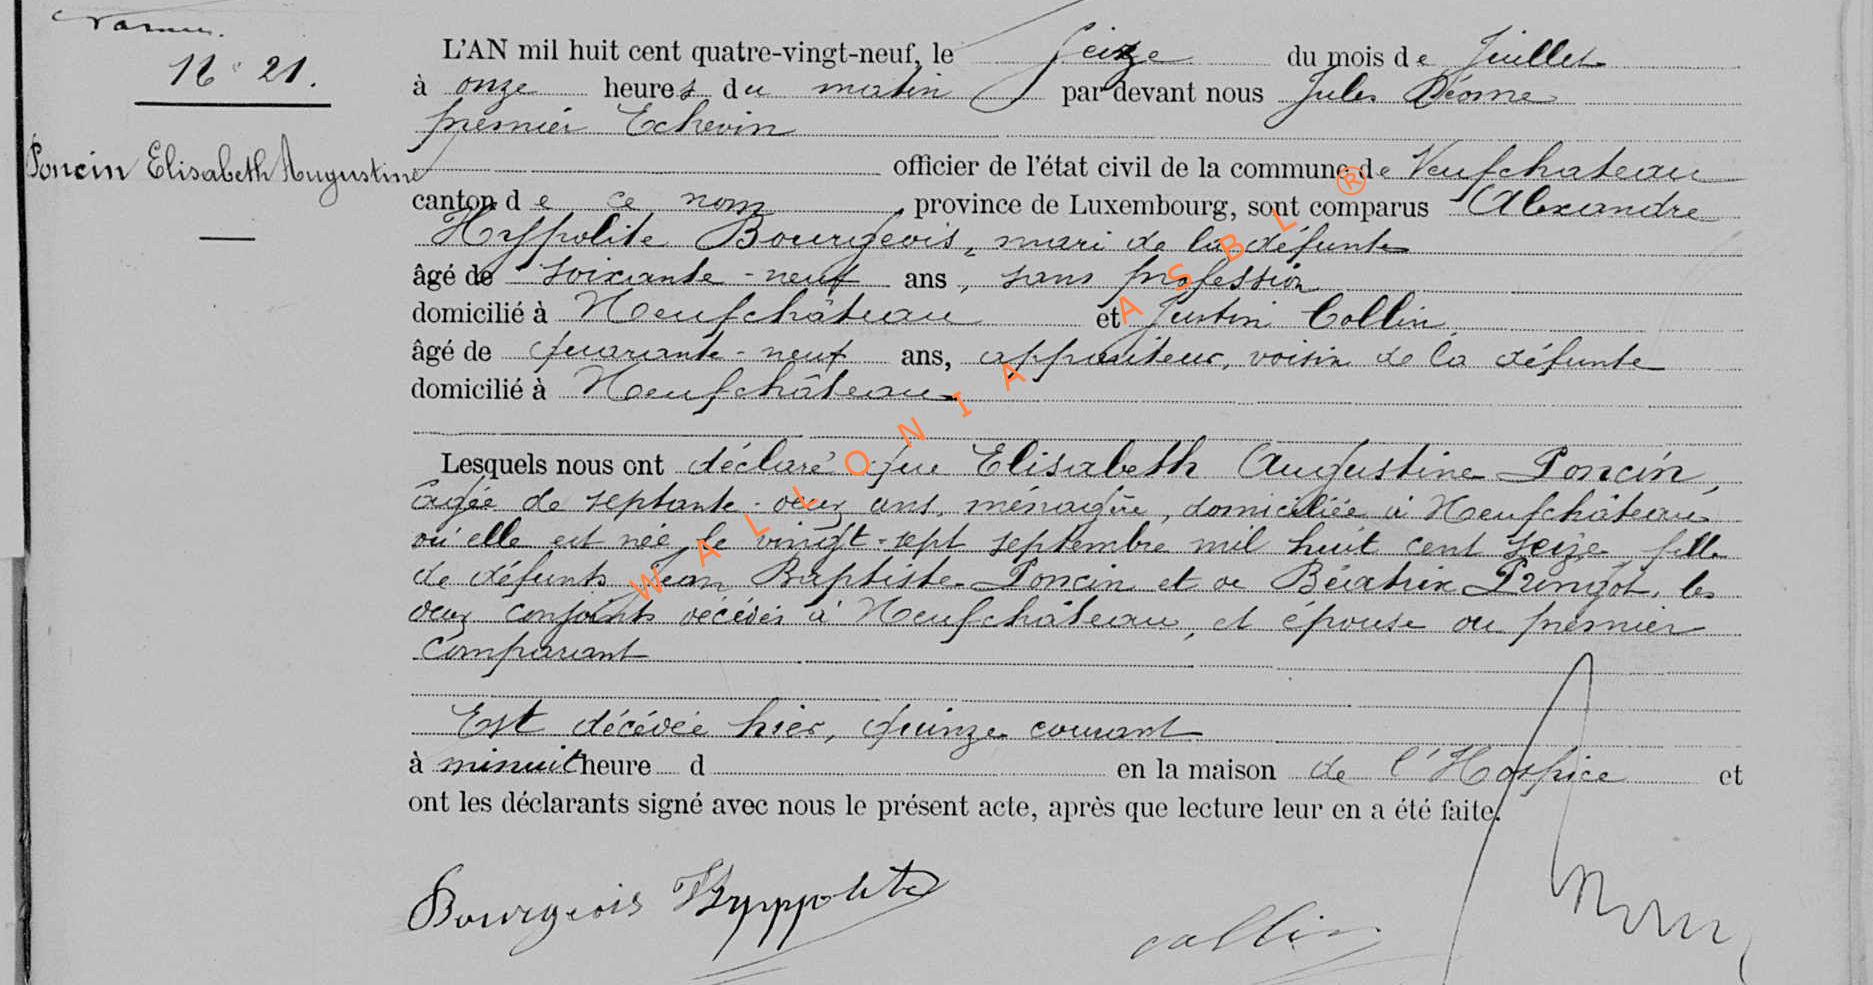 N° 21.
Poncin Elisabeth Augustine
L'AN mil huit cent quatre-vingt-neuf, le seize du mois de Juillet
à onze heures du matin par devant nous Jules
premier Echevin
officier de l'état civil de la commune de Neufchateau
canton de ce nom, province de Luxembourg, sont comparus Alexandre
Hyppolite Bourgeois, mari de la défunte
âgé de soixante-neuf ans, sans profession
domicilié à Neufchâteau et Justin Collin
âgé de quarante-neuf ans, appariteur, voisin de la défunte
domicilié à Neufchâteau
Lesquels nous ont déclaré que Elisabeth Augustine Poncin,
âgée de septante-deux ans, ménagère, domiciliée à Neufchâteau
où elle est née le vingt-sept septembre mil huit cent seize, fille
de défunts Jean Baptiste Poncin et de Béatrix les
deux conjoints décédés à Neufchâteau, et épouse du premier
comparant
Est décédée hier, quinze courant
à minuit heure d en la maison de l'Hospice et
ont les déclarants signé avec nous le présent acte, après que lecture leur en a été faite.
Bourgeois Hyppolite
collin
WALLONIA ASBL ®